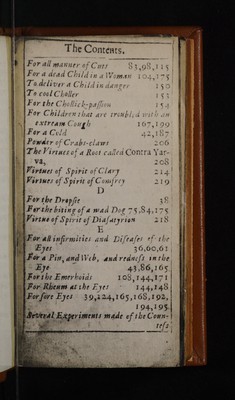 The Contents.
For all manner of Cuts 83,98,115
For a dead Child in a Woman 104,175
To deliver a Child in danger 150
To cool Choller 153
For the Chollick-passion 154
For Children that are troubled with an
extream Cough 167,199
For a Cold 42,187
Powder of Crabs-claws 206
The Virtues of a Root called Contra Yar-
va, 208
Virtues of Spirit of Clary 214
Virtues of Spirit of Comfrey 219
D
For the Dropsie 38
For the biting of a mad Dog 75,84,175
Virtue of Spirit of Diasatyrion 218
E
For all infirmities and Diseases of the
Eye. 36,60,61
For a Pin, and Web, and redness in the
Eye 43,86,165
For the Emerhoids 108,144,171
For Rheum at the Eyes 144,148
For sore Eyes 39,124,165,168,192,
194,195
Several Experiments made of the Coun-
tess